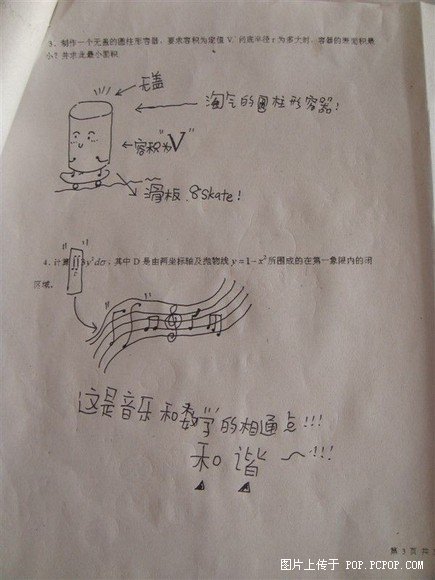 3、制作一个无盖的圆柱形容器，要求容积为定值 V，问底半径 r 为多大时，容器的表面积最
小？并求此最小面积
无盖
淘气的圆柱形容器！
←容积为"V"
滑板 Skate！
4、计算 y²dσ，其中 D 是由两坐标轴及抛物线 y=1-x² 所围成的在第一象限内的闭
区域。
这是音乐和数学的相通点!!!
和谐～!!!
第 3 页 共
图片上传于 POP.PCPOP.COM